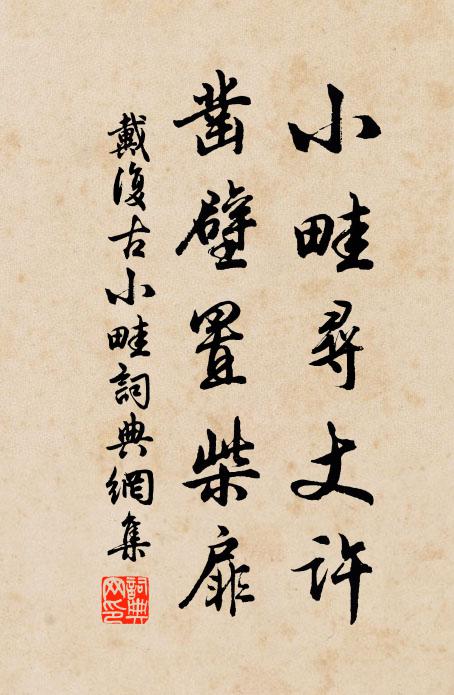 小畦尋丈許
凿壁置柴扉
戴復古小畦詞典網集
詞典網印